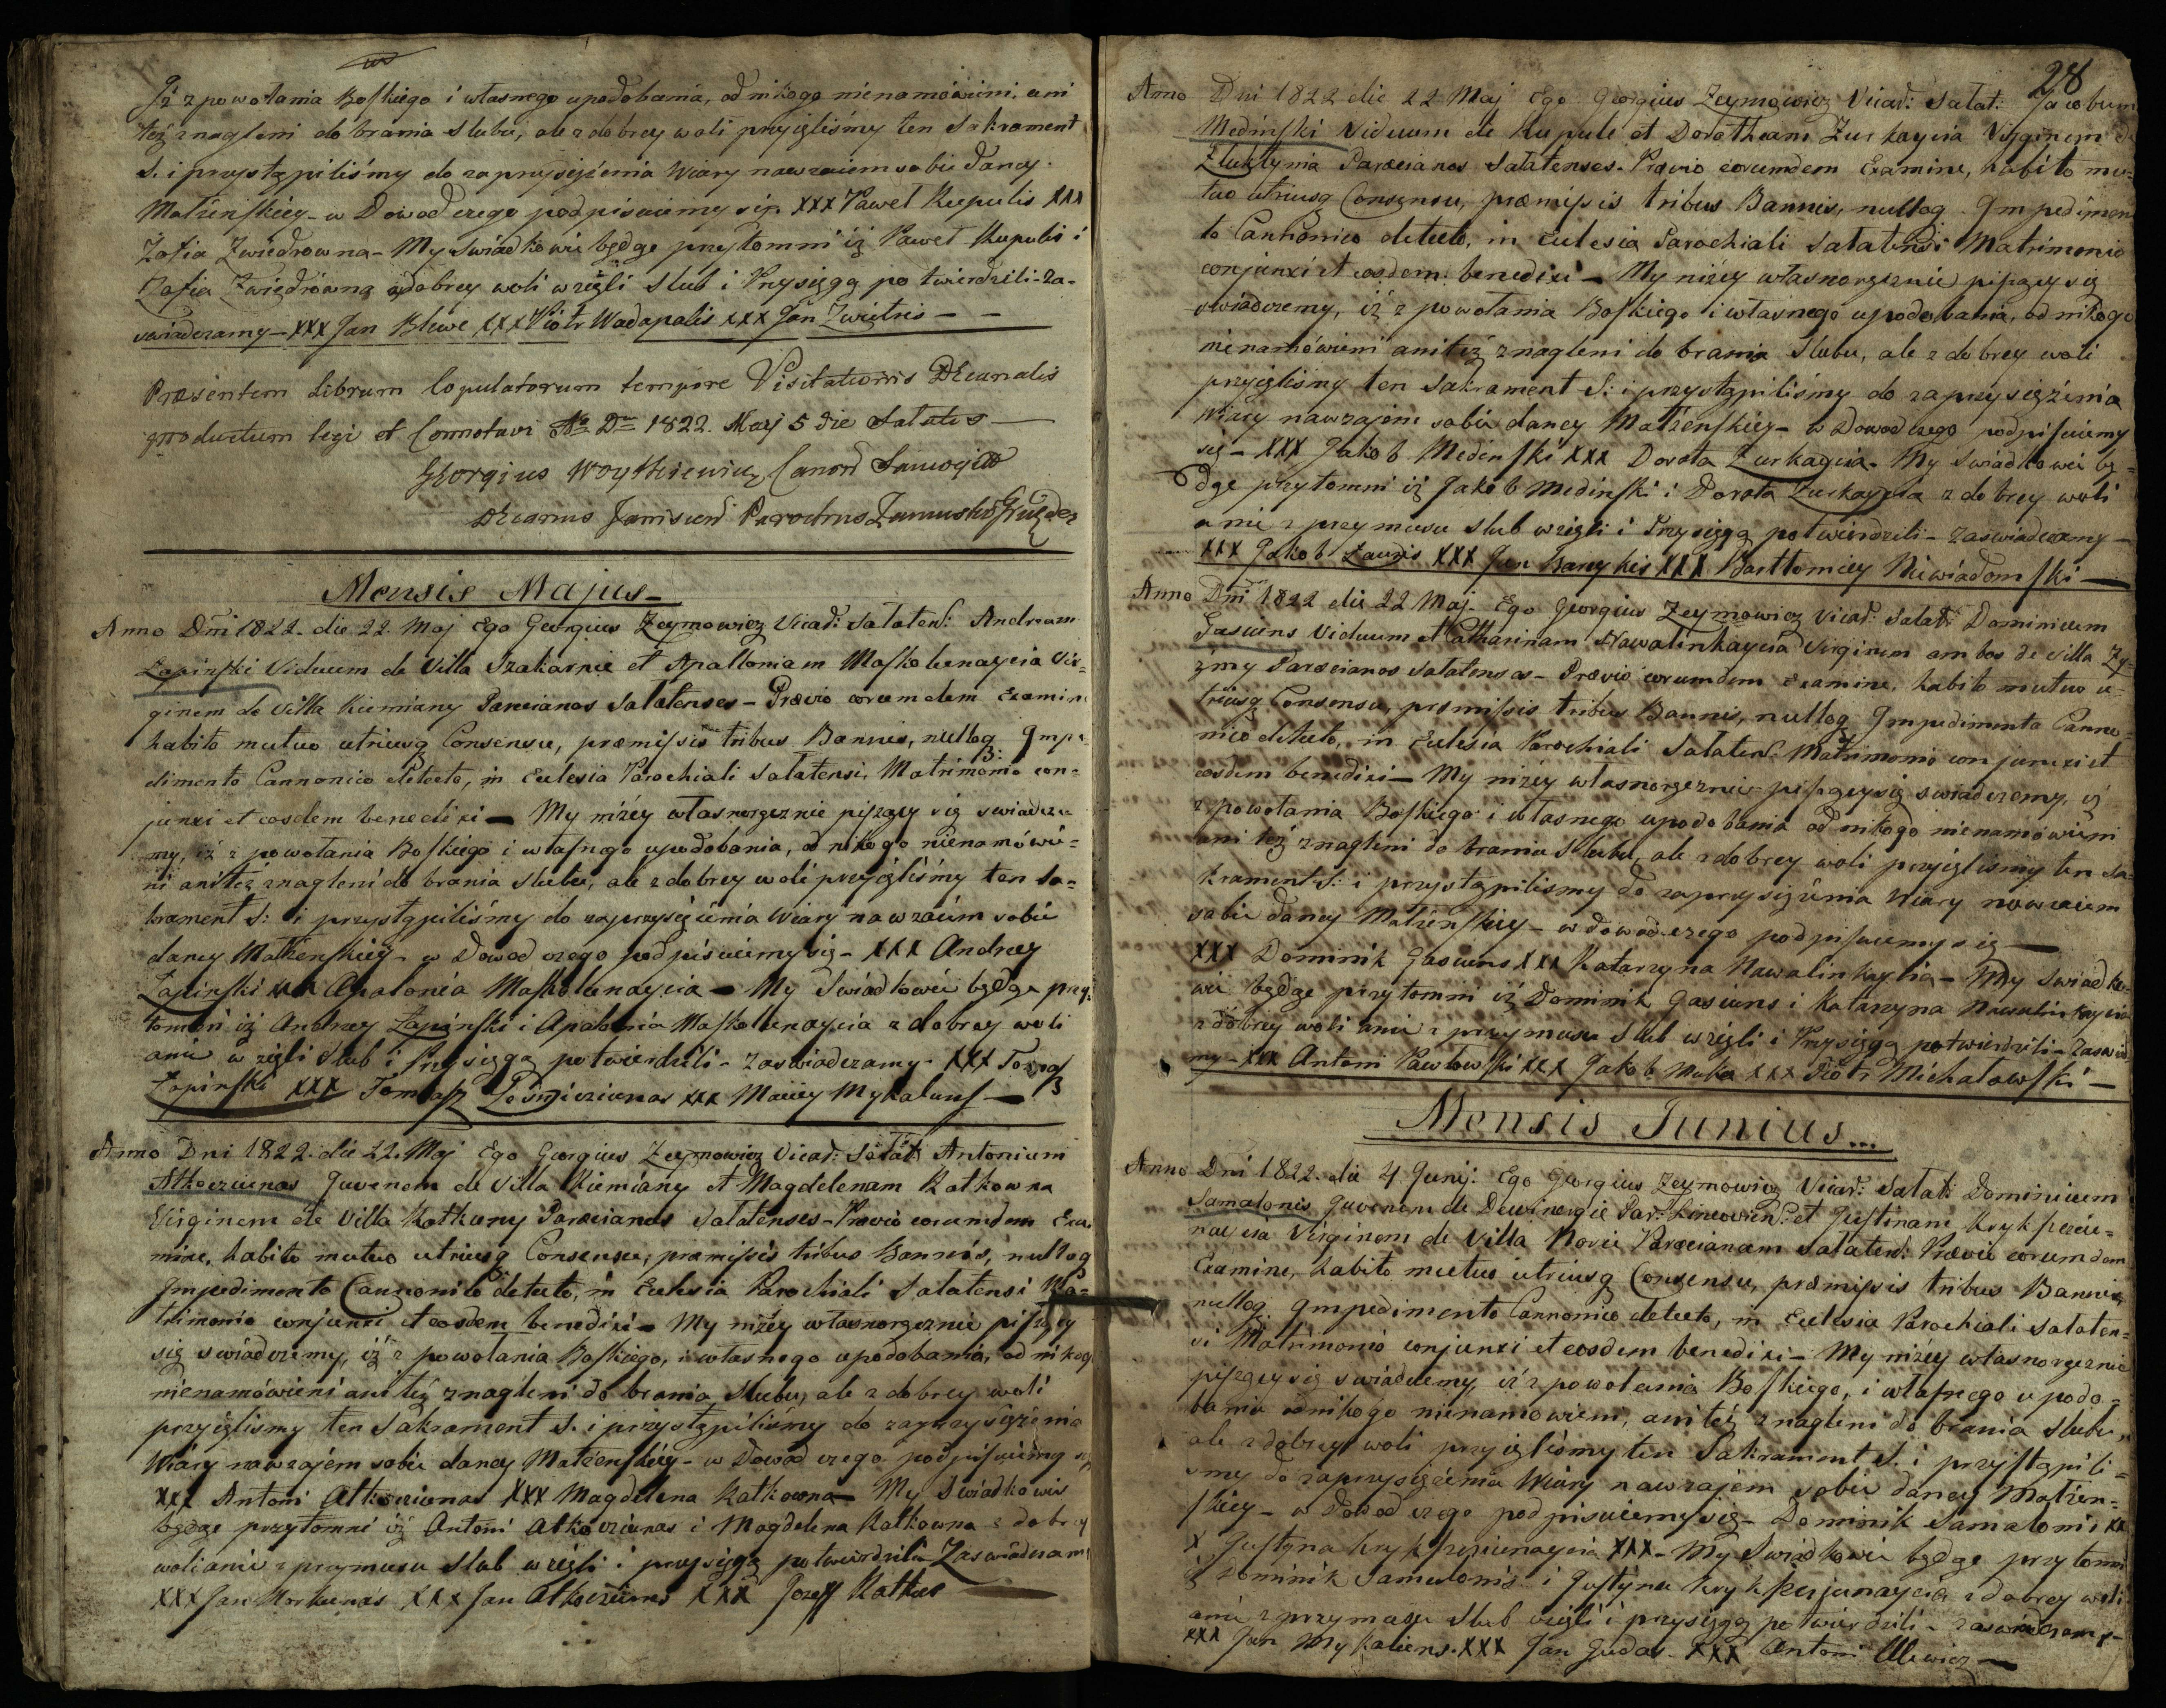 Iż z powołania Boskiego i własnego upodobania, od nikogo nienamówieni, ani
też znagleni do brania slubu, ale z dobrey woli przyieliśmy ten Sakrament
S. i przystąpiliśmy do zaprzysiężenia Wiary nawzaiem sobie daney
Małżenskiey - w Dowod czego podpisuiemy się. XXX Paweł Kupulis XXX
Zofia Zwiedrowna - My Swiadkowie będąc przytomni iż Paweł Kupulis i
Zofia Zwiedrowna z dobrey woli wzięli Slub i Przysięgą potwierdzili - za-
swiadczamy - XXX Jan Blewe XXX Piotr Wadapalis XXX Jan Zwietris - -
Præsentem Librum Copulatorum tempore Visitationis Decanalis
productum legi et Connotavi Ao Dni 1822. Maij 5 die Salatis -
Georgius Woytkiewicz Canon Samogitiæ
Decanus Janiscen Parochus
Mensis Majus -
Anno Dni 1822. die 22. Maj Ego Georgius Zeymowicz Vicar: Salaten: Andream
Łapinski Viduum de Villa Szakarnie et Apalloniam Maskolunaycia Vir=
ginem de Villa Kiemiany Parœcianos Salatenses - Prævio eorumdem Examine
habito mutuo utriusq Consensu, præmissis tribus Bannis, nulloq Impe=
dimento Cannonico detecto, in Eclesia Parochiali Salatensi, Matrimonio con=
junxi et eosdem benedixi - My niżéy własnoręcznie piszący się swiadcze
my, iż z powołania Boskiego i własnego upodobania, od nikogo nienamówie=
ni anitéż znagleni do brania slubu, ale z dobrey woli przyieliśmy ten Sa=
krament S: i przystąpiliśmy do zaprzysiężenia Wiary nawzaiem sobie
daney Małżenskiey - w Dowod czego podpisuiemy się - XXX Andrzey
Łapinski XXX Apalonia Maskolunaycia - My Swiadkowie będąc przy=
tomni iż Andrzey Łapinski i Apalonia Maskolunaycia z dobrey woli
anie wzięli Slub i Przysięgą potwierdzili - zaswiadczamy - XXX Tomasz
Łapinski XXX Tomasz XXX Maciey Mykaluns -
Anno Dni 1822. die 22. Maj Ego Georgius Zeymowicz Vicar: Salat: Antonium
Atkoczunas Juvenem de Villa Kiemiany et Magdelenam Katkowna
Virginem de Villa Katkuny Parœcianos Salatenses - Prævio eorumdem Exa=
mine, habito mutuo utriusq Consensu, præmissis tribus Bannis, nulloq
Impedimento Cannonico detecto, in Eclesia Parochiali Salatensi Ma=
trimonio conjunxi et eosdem benedixi - My niżéy własnoręcznie piszący
się swiadczemy, iż z powołania Boskiego, i własnego upodobania, od nikogo
nienamówieni anitéż znagleni do brania Slubu, ale z dobrey woli
przyieliśmy ten Sakrament S. i przystąpiliśmy do zaprzysiężenia
Wiary nawzajem sobie daney Małżenskiey - w Dowod czego podpisuiemy się
XXX Antoni Atkoczunas XXX Magdelena Katkowna - My Swiadkowie
będąc przytomni iż Antoni Atkoczunas i Magdelena Katkowna z dobrey
woli anie z przymusu slub wzięli i przysięgą potwierdzili - Zaswiadczamy
XXX Jan Morkunas XXX Jan Atkoczunas XXX Jozeff Katkus
28
Anno Dni 1822 die 22 Maj Ego Georgius Zeymowicz Vicar: Salat: Jacobum
Medinski Viduum de Kupule et Dorotheam Zurkaycia Virginem de
Parœcianos Salatenses - Prævio eorumdem Examine, habito mu=
tuo utriusq Consensu, præmissis tribus Bannis, nulloq Impedimen
to Cannonico detecto, in Eclesia Parochiali Salatensi Matrimonio
conjunxi et eosdem benedixi - My niżey własnoręcznie piszący się
swiadczemy, iż z powołania Boskiego i własnego upodobania, od nikogo
nienamówieni anitéż znagleni do brania Slubu, ale z dobrey woli
przyieliśmy ten Sakrament S: i przystąpiliśmy do zaprzysiężenia
Wiary nawzajem sobie daney Małżenskiey - w Dowod czego podpisuiemy
się - XXX Jakob Medinski XXX Dorota Zurkaycia - My Swiadkowie bę=
dąc przytomni iż Jakob Medinski i Dorota Zurkaycia z dobrey woli
anie z przymusu slub wzięli i Przysięgą potwierdzili - zaswiadczamy -
XXX Jakob Laudis XXX Jan XXX Bartłomiey Niewiadomski -
Anno Dni 1822 die 22 Maj - Ego Georgius Zeymowicz Vicar: Salat: Dominicum
Gasiuns Viduum et Catharinam Nawalinkaycia Virginem ambos de Villa Zy=
zmy Parœcianos Salatenses - Prævio eorumdem Examine, habito mutuo u=
triusq Consensu, præmissis tribus Bannis, nulloq Impedimento Canno=
nico detecto, in Eclesia Parochiali Salaten: Matrimonio conjunxi et
eosdem benedixi - My niżéy własnoręcznie piszący się swiadczemy, iż
z powołania Boskiego i własnego upodobania od nikogo nienamówieni
ani też znagleni do brania Slubu, ale z dobrey woli przyieliśmy ten Sa=
krament S: i przystąpiliśmy do zaprzysiężenia Wiary nawzaiem
sobie daney Małżenskiey - w dowod czego podpisuiemy się -
XXX Dominik Gasiuns XXX Katarzyna Nawalinkaycia - My Swiadko=
wie będąc przytomni iż Dominik Gasiuns i Katarzyna Nawalinkaycia
z dobrey woli anie z przymusu Slub wzięli i Przysięgą potwierdzili - Zaswiad
my - XXX Antoni Pawłowski XXX Jakob Muka XXX Piotr Michałowski -
Mensis Junius...
Anno Dni 1822. die 4 Junij: Ego Georgius Zeymowicz Vicar: Salat: Dominicum
Samulonis Juvenem de Dewinergie Par: et Justinam Krykszciu=
naycia Virginem de Villa Norie Parœcianam Salaten: Prævio eorumdem
Examine, habito mutuo utriusq Consensu, præmissis tribus Bannis,
nulloq Impedimento Cannonico detecto, in Eclesia Parochiali Salaten=
si Matrimonio conjunxi et eosdem benedixi - My niżéy własnoręcznie
piszący się swiadczemy, iż z powołania Boskiego, i własnego upodo=
bania odnikogo nienamowieni, ani też znagleni do brania Slubu,
ale z dobrey woli przyieliśmy ten Sakrament S. i przystąpili=
śmy do zaprzysiężenia Wiary nawzajem sobie daney Małżen=
skiey - w Dowod czego podpisuiemy się - Dominik Samulonis XX
X Justyna Krykszciunaycia XXX - My Swiadkowie będąc przytomni
iż Dominik Samulonis i Justyna z dobrey woli
anie z przymusu Slub wzięli i przysięgą potwierdzili - zaswiadczamy -
XXX Jan Mykaliuns. XXX Jan Judas. XXX Antoni Ulewicz -